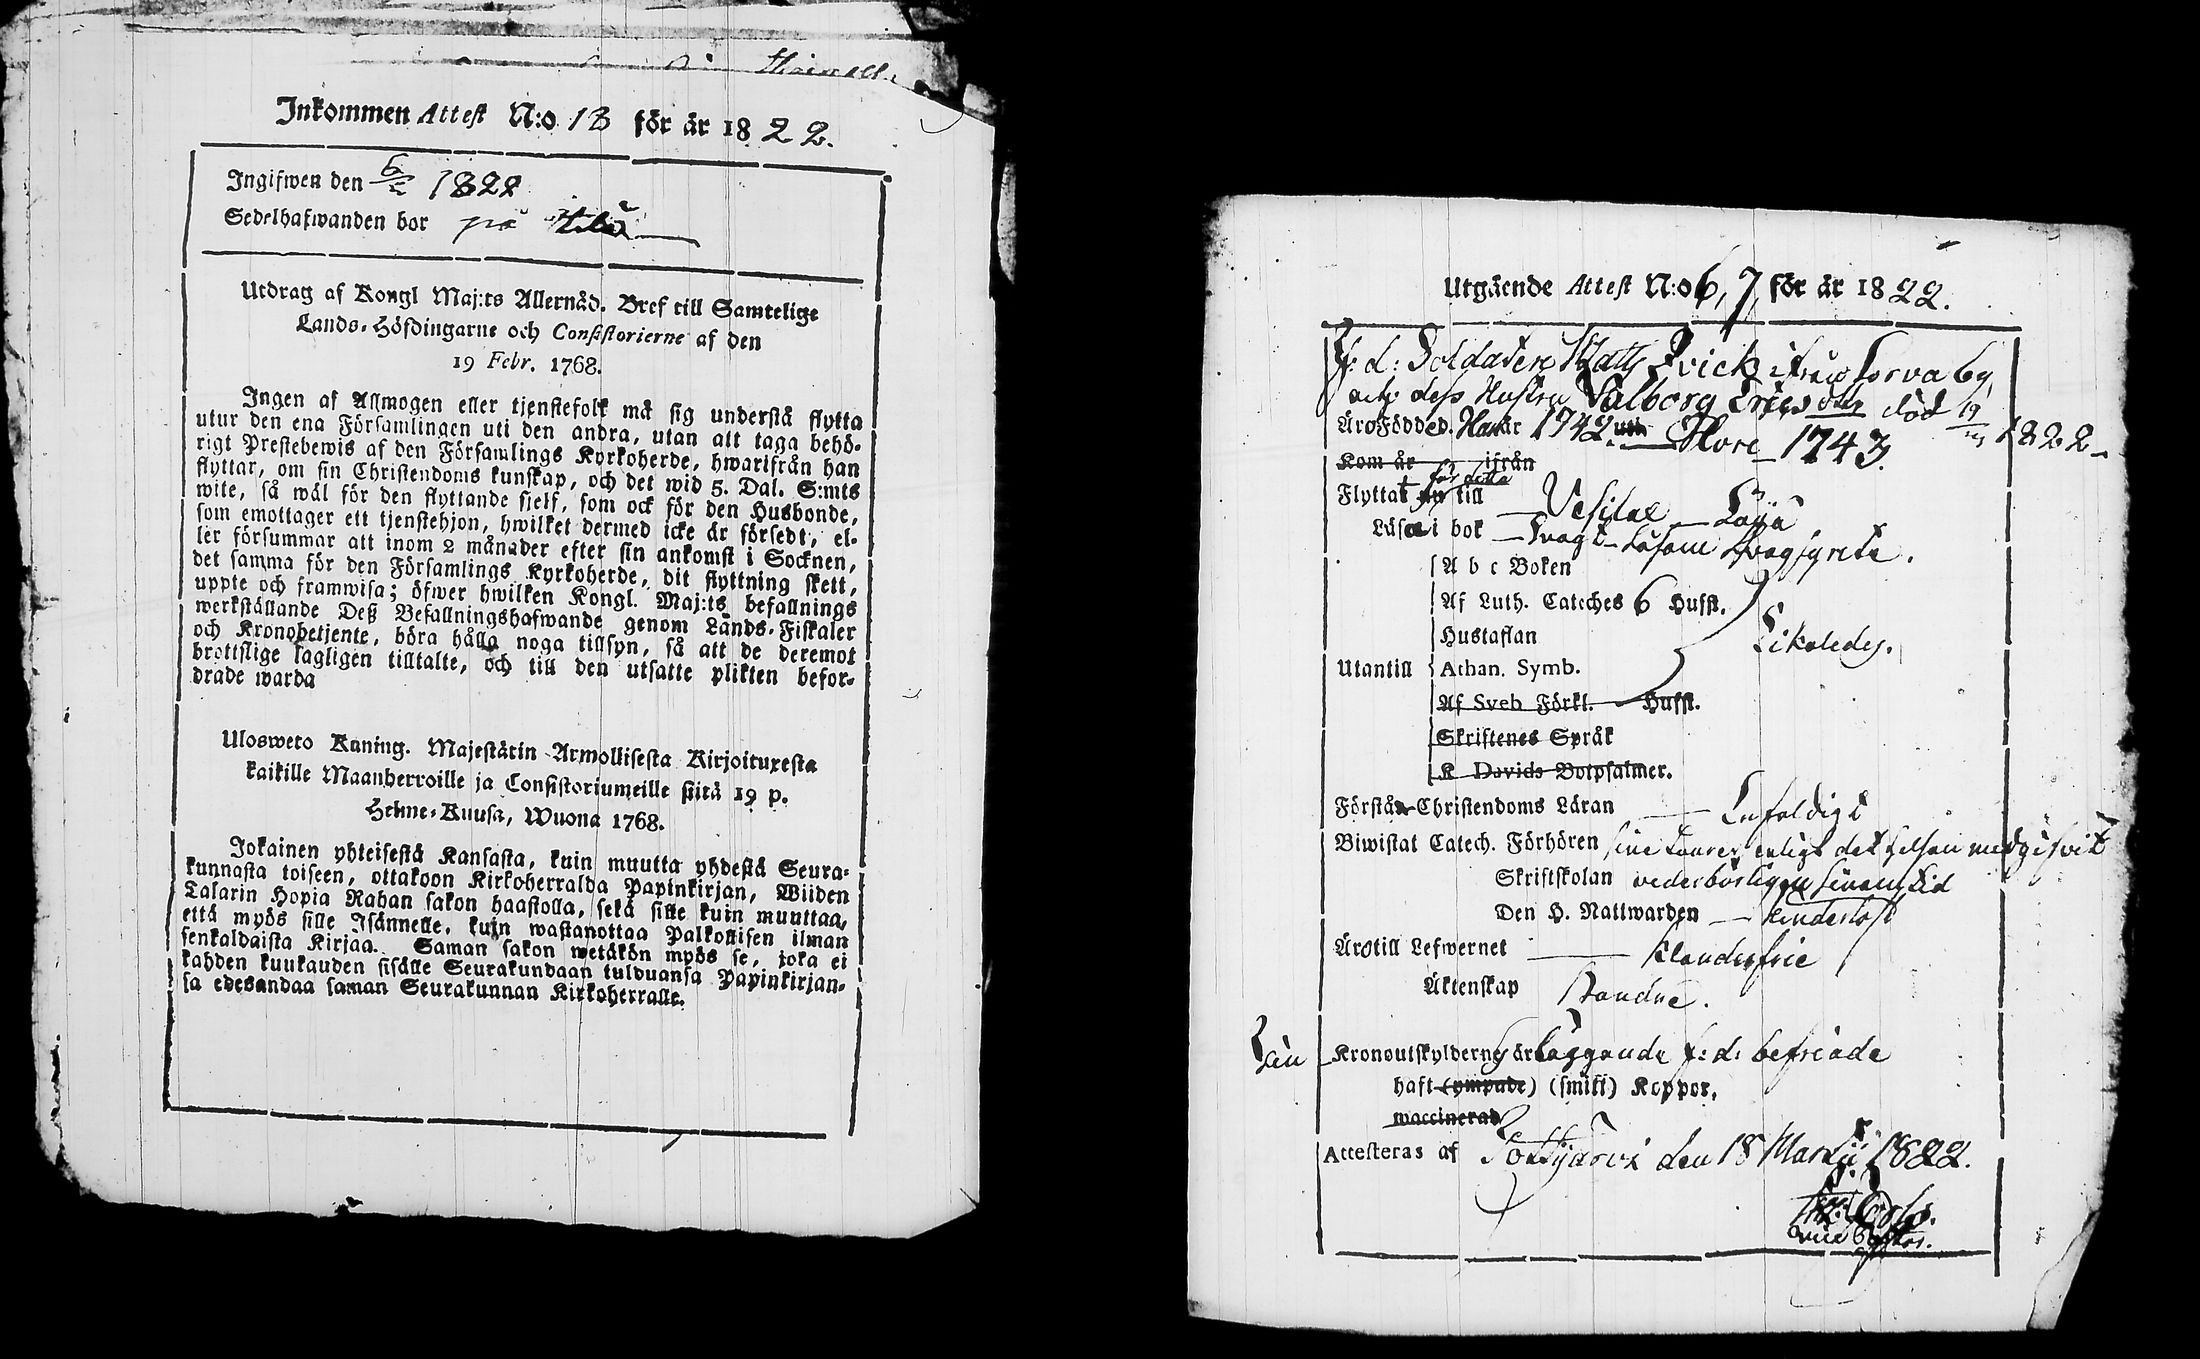 Inkommen Attest N:o 18 för år 1822.
Ingifwen den 1822
Sedelhafwanden bor på
Utdrag af Kongl Maj:ts Allernåd. Bref till Samtelige
Lands-Höfdingarne och Consistorierne af den
19 Febr. 1768.
Ingen af Allmogen eller tjenstefolk må sig understå flytta
utur den ena Församlingen uti den andra, utan att taga behö-
rigt Prestebewis af den Församlings Kyrkoherde, hwarifrån han
flyttar, om sin Christendoms kunskap, och det wid 5. Dal. S:mts
wite, så wäl för den flyttande sjelf, som ock för den Husbonde,
som emottager ett tjenstehjon, hwilket dermed icke är försedt, el-
ler försummar att inom 2 månader efter sin ankomst i Socknen,
det samma för den Församlings Kyrkoherde, dit flyttning skett,
uppte och framwisa; öfwer hwilken Kongl. Maj:ts befallnings
werkställande Deß Befallningshafwande genom Lands-Fiskaler
och Kronobetjente, böra hålla noga tillsyn, så att de deremot
brottslige lagligen tilltalte, och till den utsatte plikten befor-
drade warda
Ulosweto Kuning. Majestätin Armollisesta Kirjoituxesta
kaikille Maanherroille ja Consistoriumeille siitä 19 p.
Helme-Kuusa, Wuona 1768.
Jokainen yhteisestä Kansasta, kuin muutta yhdestä Seura-
kunnasta toiseen, ottakoon Kirkoherralda Papinkirjan, Wiiden
Talarin Hopia Rahan sakon haastolla, sekä sille kuin muuttaa,
että myös sille Isännelle, kuin wastanottaa Palkollisen ilman
senkaldaista Kirjaa. Saman sakon wetäkön myös se, joka ei
kahden kuukauden sisälle Seurakundaan tulduansa Papinkirjan-
sa edesandaa saman Seurakunnan Kirkoherralle.
Utgående Attest N:o 6, 7, för år 1822.
f: d: Soldaten Matts Qvick ifrån Sorva by
och dess Hustru Valborg Ericsdotr död 19 1822
Äro Födde d. Han år 1742. Hon 1743.
Kom år ifrån
Flyttat för detta till Vesilax Laja
Läsa i bok Svagt
A b c Boken
Af Luth. Cateches 6 Hufst.
Hustaflan Likaledes.
Utantill Athan. Symb.
Af Sveb Förkl. Hufst.
Skriftenes Språk
K Davids Botpsalmer.
Förstå Christendoms Läran Enfaldigt
Biwistat Catech. Förhören
Skriftskolan vederbörligen
Den H. Nattwarden
Äro till Lefwernet Klanderfrie
Äktenskap Bundne.
Kronoutskylderne är f: d: befriade
haft (ympade) (smitt) Koppor.
waccinerad
Attesteras af Tottijärvi den 18 Martii 1822.